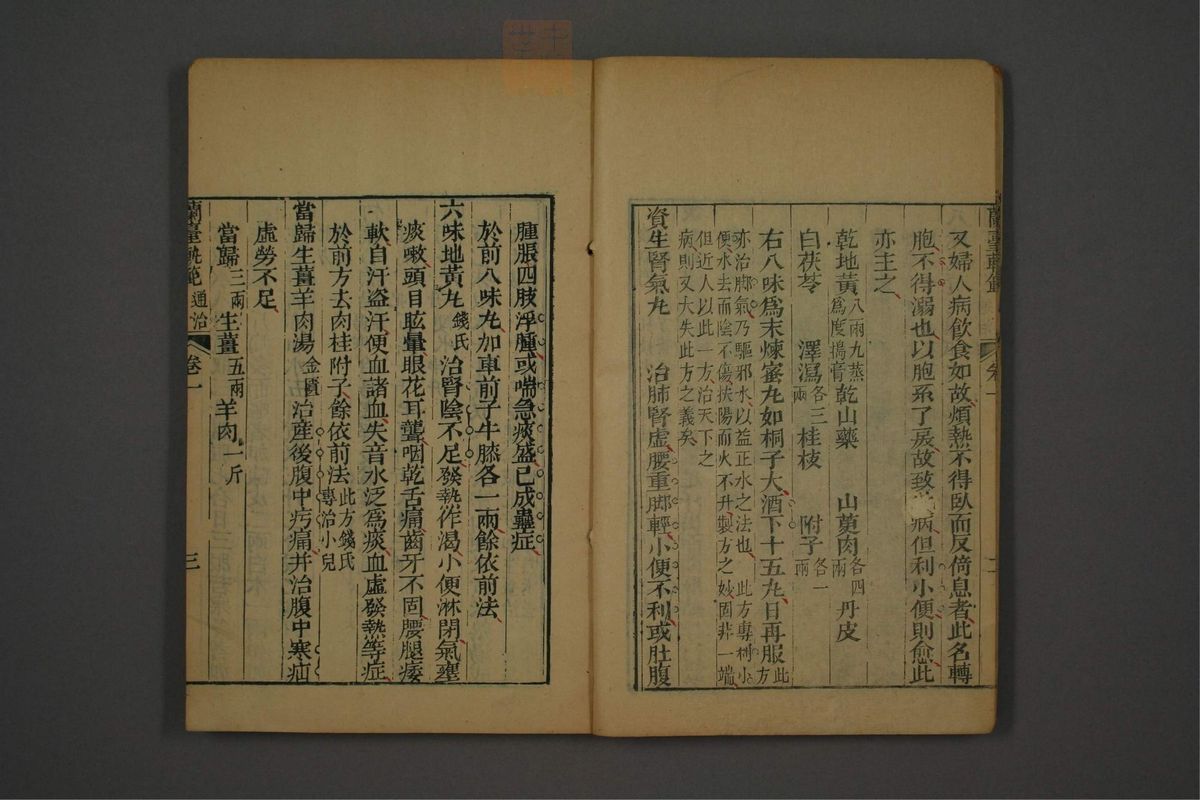 又婦人病飲食如故煩熱不得臥而反倚息者此名轉
胞不得溺也以胞系了戾故致病但利小便則愈此
亦主之
乾地黃八兩九蒸爲度搗膏乾山藥 山萸肉各四兩丹皮
白茯苓 澤瀉各三兩桂枝 附子各一兩
右八味爲末煉蜜丸如桐子大酒下十五丸日再服此方
亦治脚氣乃驅邪水以益正水之法也 此方專利小
便水去而陰不傷扶陽而火不升製方之妙固非一端
但近人以此一方治天下之
病則又大失此方之義矣
資生腎氣丸 治肺腎虛腰重脚輕小便不利或肚腹
腫脹四肢浮腫或喘急痰盛已成蠱症
於前八味丸加車前子牛膝各一兩餘依前法
六味地黃丸錢氏 治腎陰不足發熱作渴小便淋閉氣壅
痰嗽頭目眩暈眼花耳聾咽乾舌痛齒牙不固腰腿痿
軟自汗盜汗便血諸血失音水泛爲痰血虛發熱等症
於前方去肉桂附子餘依前法此方錢氏專治小兒
當歸生薑羊肉湯金匱 治産後腹中㽲痛并治腹中寒疝
虛勞不足
當歸三兩生薑五兩羊肉一斤
蘭臺軌範 通治 卷一 三